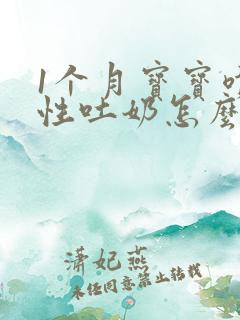 1个月宝宝
性吐奶怎麼
潇妃燕
未经同意禁止转载